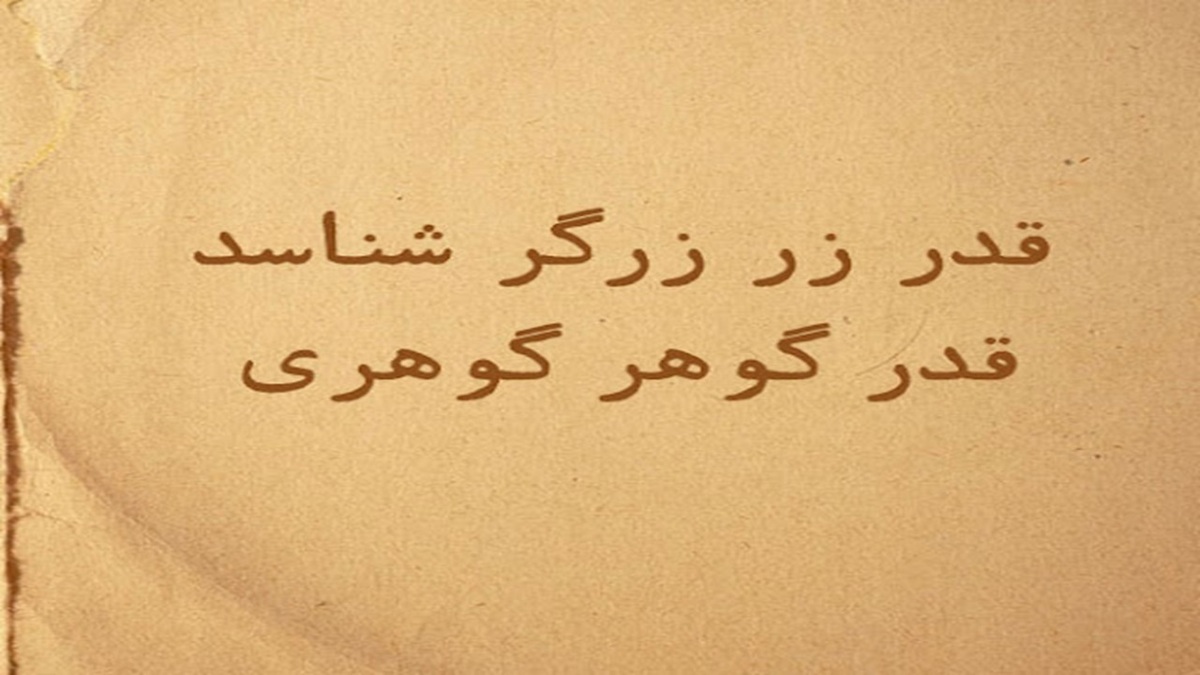 قدر زر زرگر شناسد
قدر گوهر گوهری